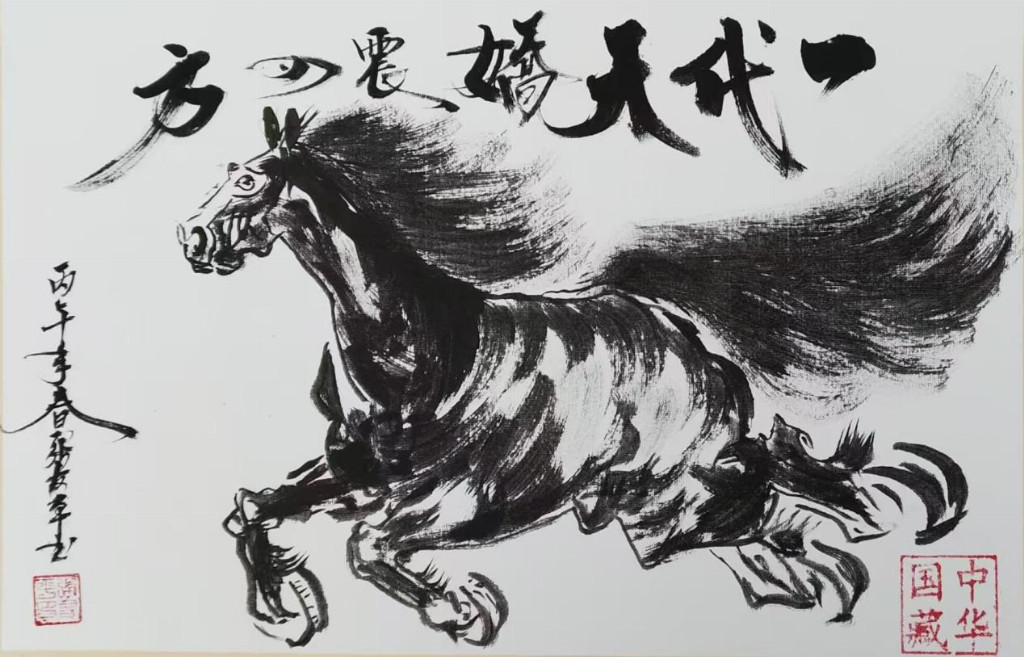 一代天嬌震四方
丙午年春
中华
国藏